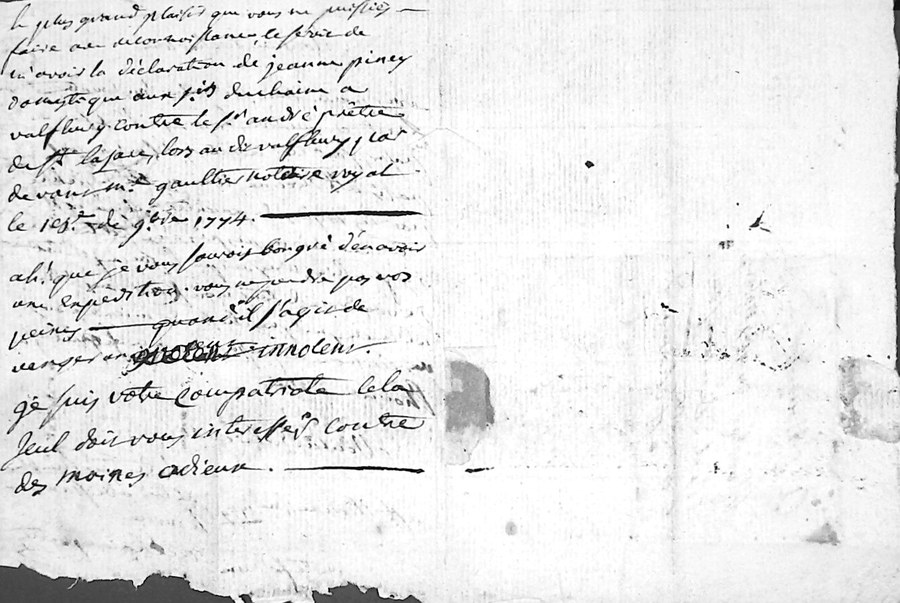 le plus grand plaisir que vous me puissies
faire avec reconnoissance le service de
m'avoir la déclaration de jeanne piney
domestique aux
valfleury contre le sr andré prêtre
de St lazare, lors au dt valfleury, par
devant me gaultier notaire royal
le de 9bre 1774.
ah! que je vous saurois bon gré d'en avoir
une Expédition. vous ne perdre pas vos
peines quand il s'agit de
venger un innocent.
je suis votre compatriote Cela
seul doit vous interesser contre
des moines adieux.